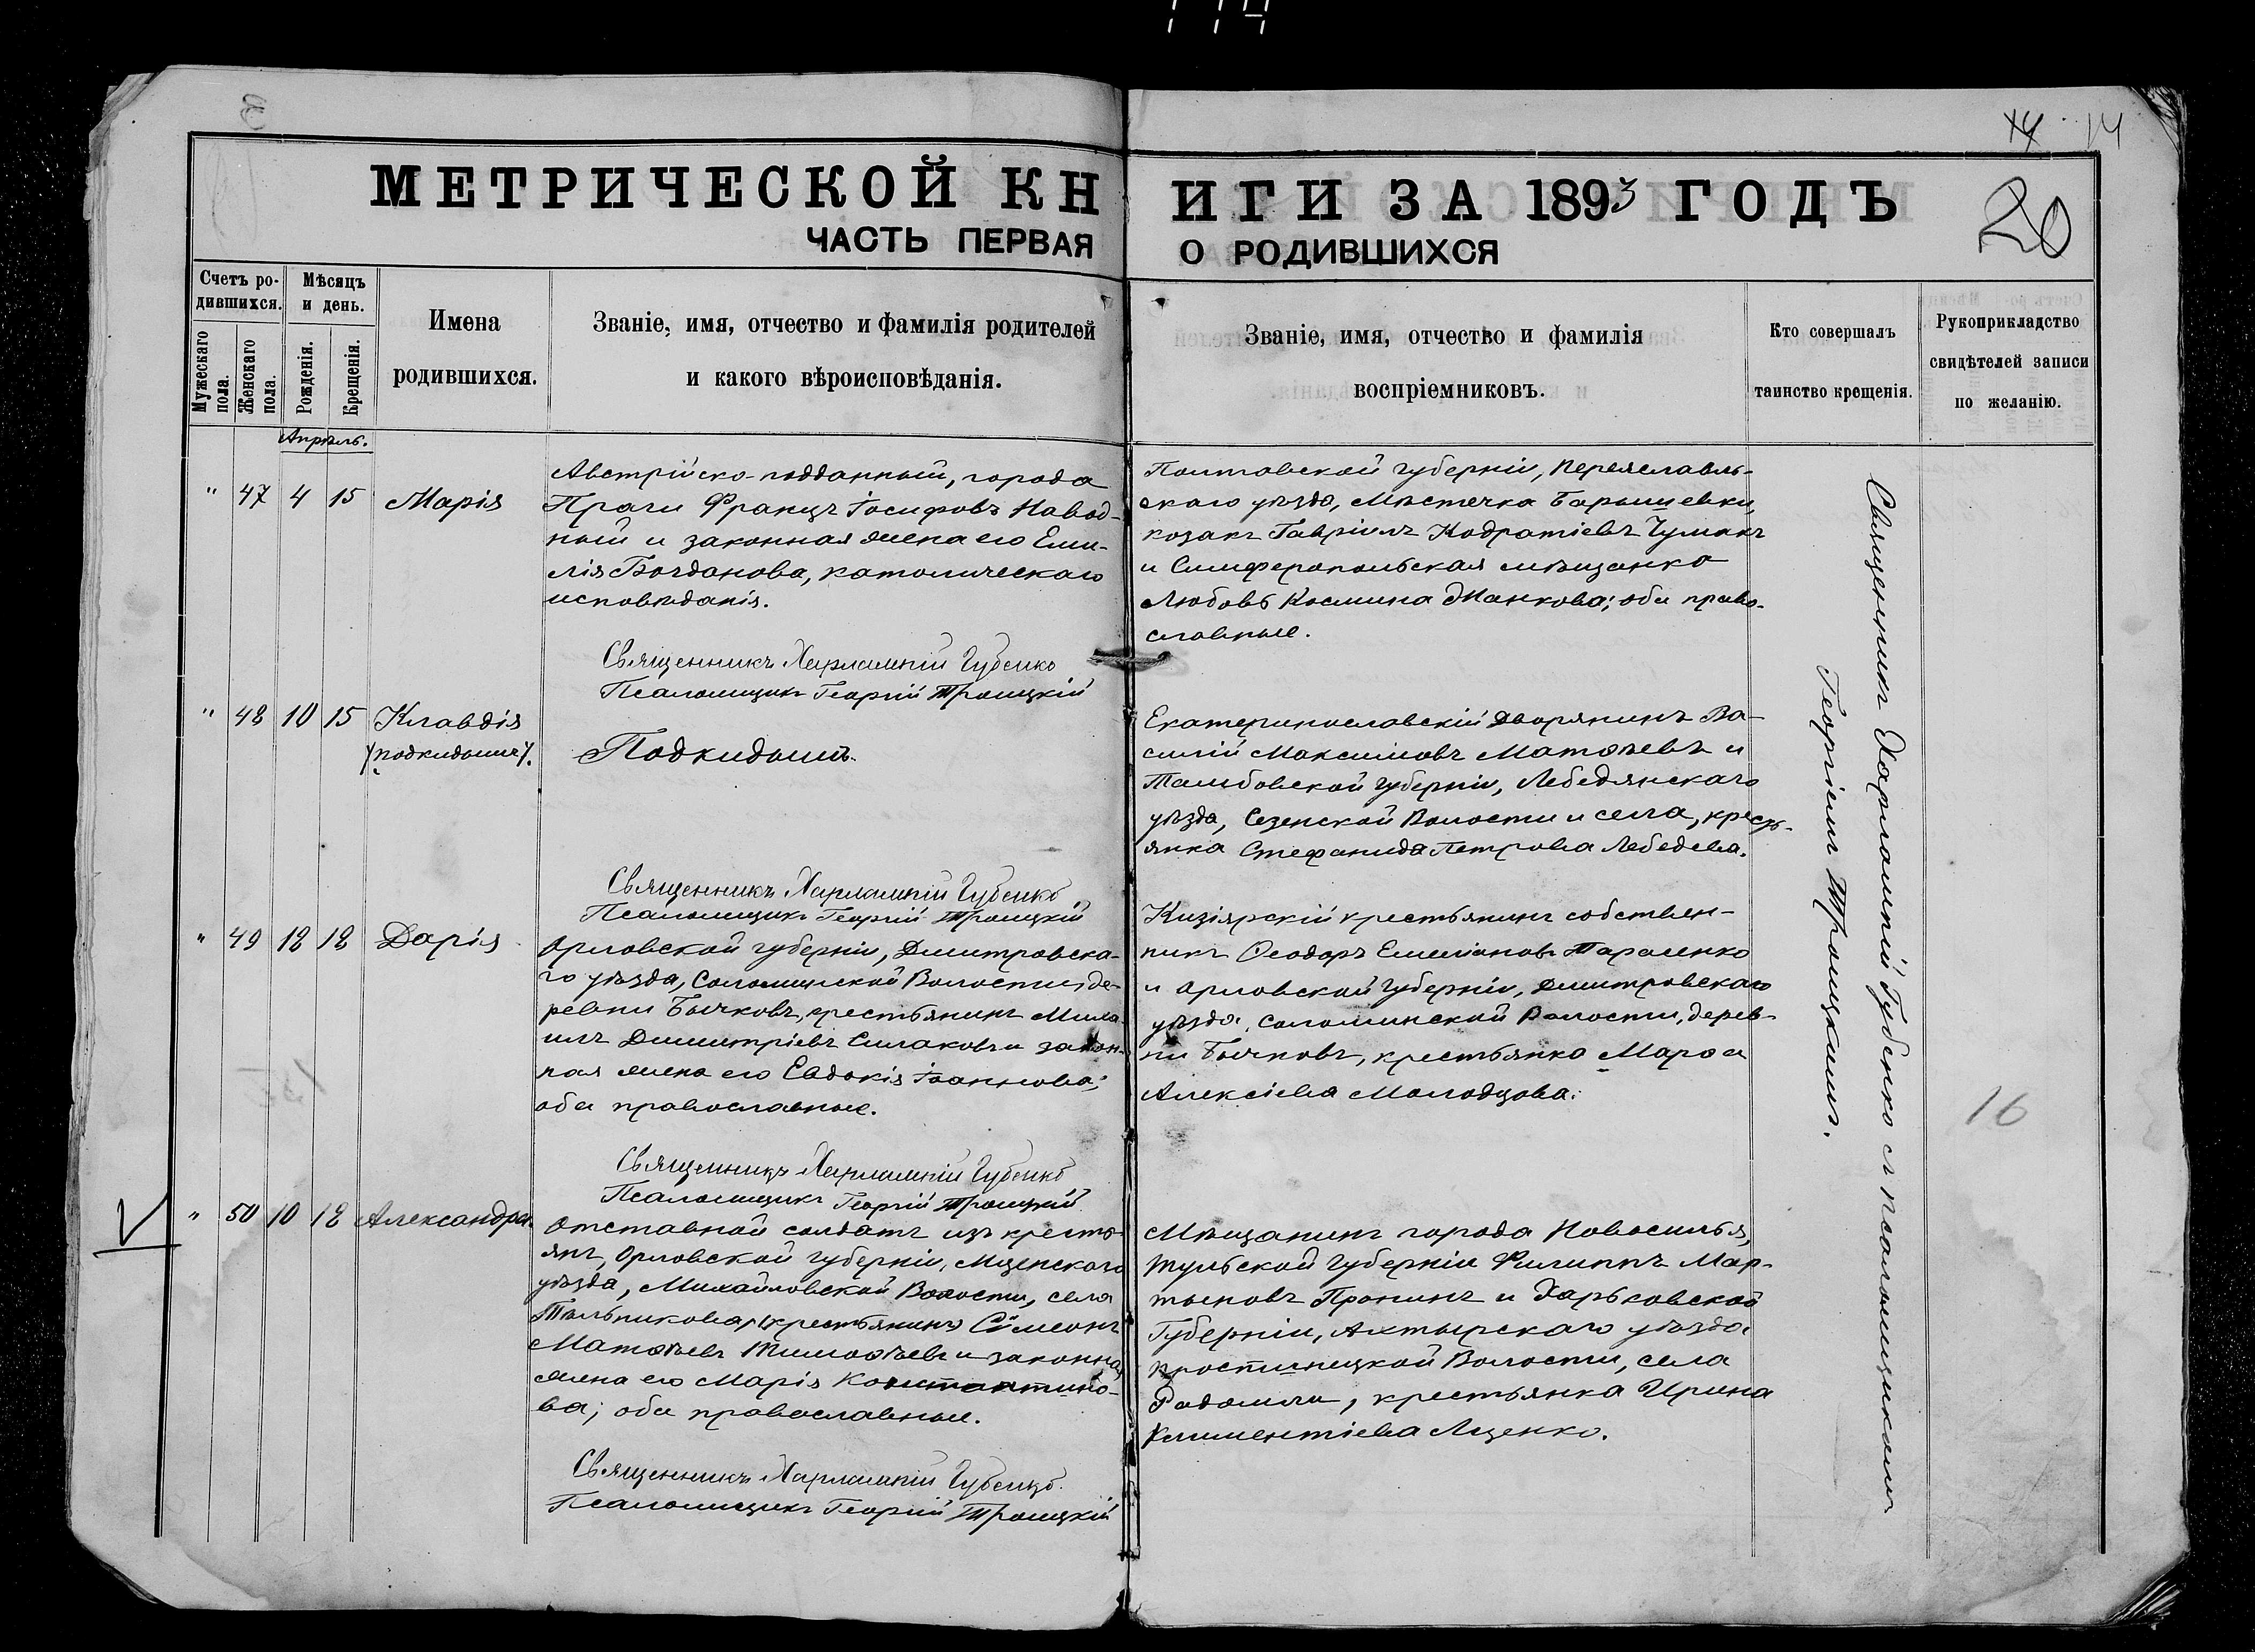 14 14
МЕТРИЧЕСКОЙ КНИГИ ЗА 1893 ГОДЪ
20
ЧАСТЬ ПЕРВАЯ О РОДИВШИХСЯ
Счетъ ро-
дившихся.
Мужескаго пола.
Женскаго пола.
Мѣсяцъ
и день.
Рожденія.
Крещенія.
Имена
родившихся.
Званіе, имя, отчество и фамилія родителей
и какого вѣроисповѣданія.
Званіе, имя, отчество и фамилія
воспріемниковъ.
Кто совершалъ
таинство крещенія.
Рукоприкладство
свидѣтелей записи
по желанію.
Апрѣль.
" 47 4 15 Марія
Австрійско-подданный, города
Праги Францъ Іосифовъ Навод-
ный и законная жена его Еми-
лія Богданова, католическаго
исповѣданія.
Священникъ Харлампій Губенко
Псаломщикъ Георгій Троицкій
Полтавской губерніи, Переяславль-
скаго уѣзда, Мѣстечка Барышевки,
козакъ Гавріилъ Кодратіевъ Чумакъ
и Симферопольская мѣщанка
Любовь Космина Жанкова; оба право-
славные.
" 48 10 15 Клавдія
(подкидышъ).
Подкидышъ.
Священникъ Харлампій Губенко
Псаломщикъ Георгій Троицкій
Екатеринославскій дворянинъ Ва-
силій Максимовъ Матвѣевъ и
Тамбовской губерніи, Лебедянскаго
уѣзда, Сезенской Волости и села, кресть-
янка Стефанида Петрова Лебедева.
" 49 12 12 Дарія
Орловской губерніи, Димитровска-
го уѣзда, Соломинской Волости, де-
ревни Бычковъ, крестьянинъ Миха-
илъ Димитріевъ Силаковъ и закон-
ная жена его Евдокія Іоаннова;
оба православные.
Священникъ Харлампій Губенко
Псаломщикъ Георгій Троицкій
Кизіярскій крестьянинъ собствен-
никъ Ѳеодоръ Емиліановъ Тараненко
и Орловской губерніи, Димитровскаго
уѣзда, Соломинской Волости, дерев-
ни Бычковъ, крестьянка Марѳа
Алексіева Молодцова.
16
" 50 10 12 Александра.
Отставной солдатъ изъ кресть-
янъ, Орловской губерніи, Мценскаго
уѣзда, Михайловской Волости, села
крестьянинъ Сѵмеонъ
Матѳѣевъ Тимоѳѣевъ и законная
жена его Марія Константино-
ва; оба православные.
Священникъ Харлампій Губенко.
Псаломщикъ Георгій Троицкій
Мѣщанинъ города Новосилья,
Тульской губерніи Филиппъ Мар-
тыновъ Пронинъ и Харьковской
Губерніи, Ахтырскаго уѣзда
Волости, села
Радомли, крестьянка Ирина
Климентіева Лященко.
Священникъ Харлампій Губенко съ псаломщикомъ
Георгіемъ Троицкимъ.